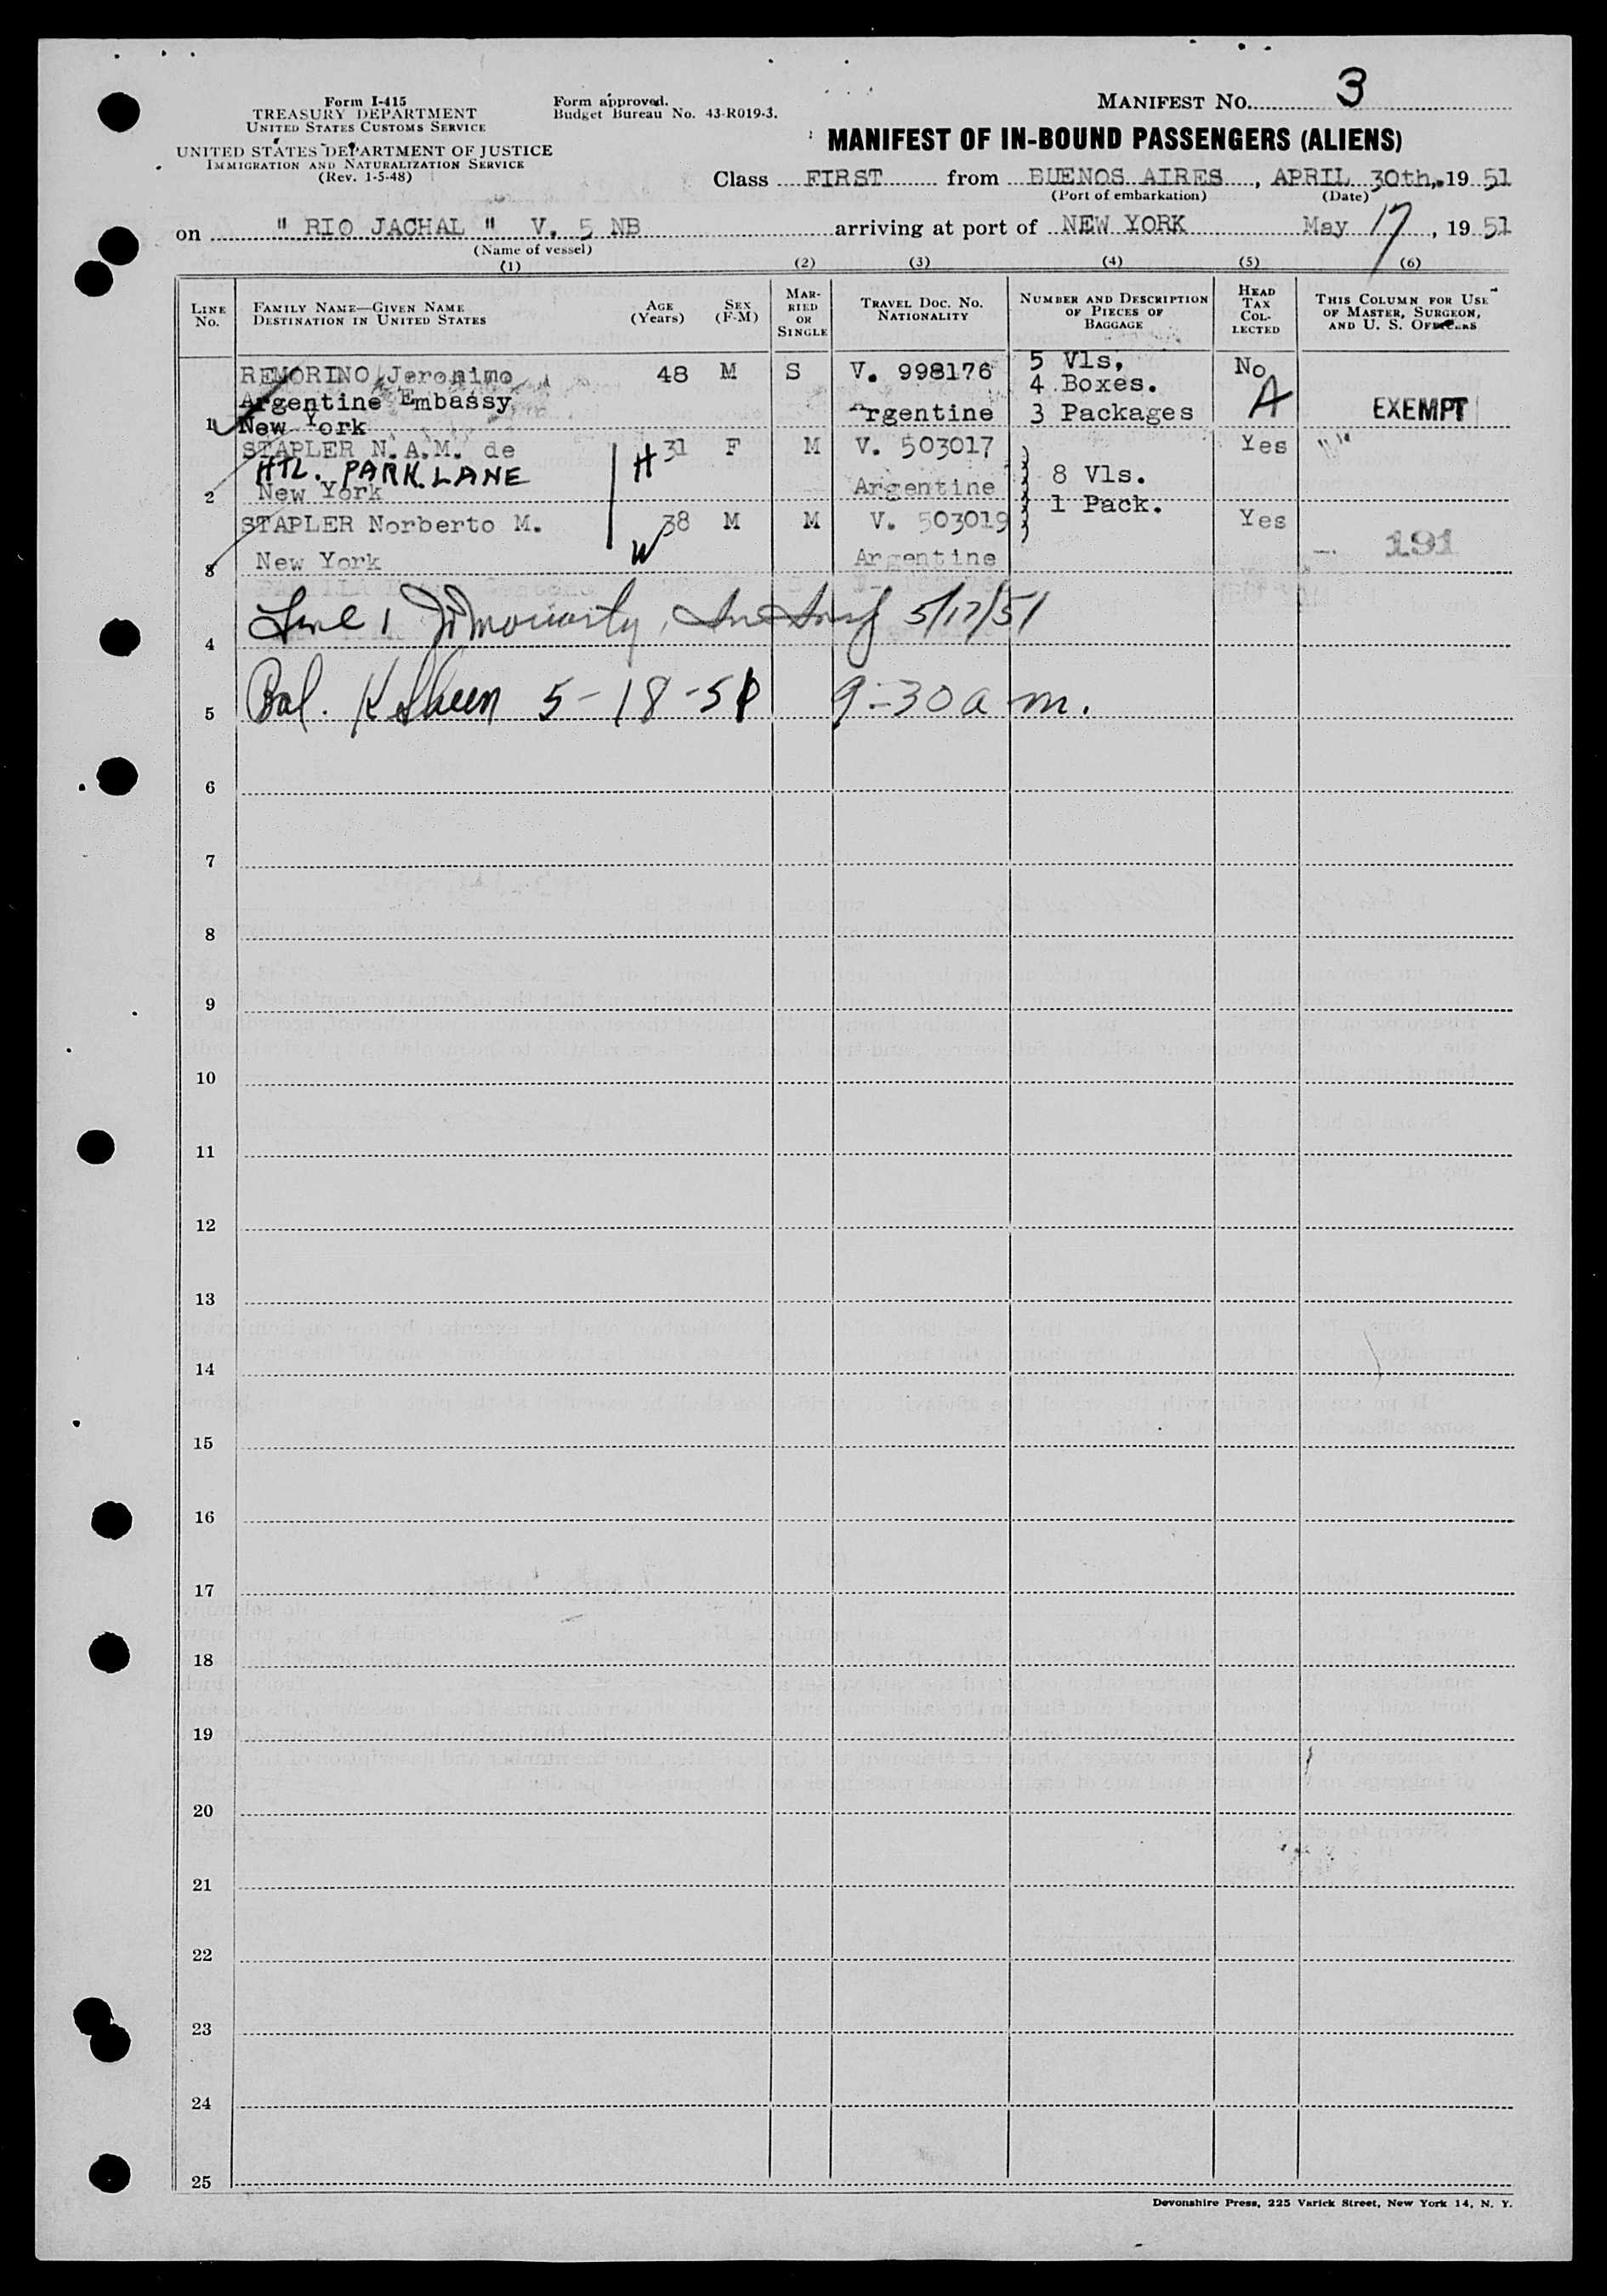 Form I-415
TREASURY DEPARTMENT
UNITED STATES CUSTOMS SERVICE
UNITED STATES DEPARTMENT OF JUSTICE
IMMIGRATION AND NATURALIZATION SERVICE
(Rev. 1-5-48)
Form approved.
Budget Bureau No. 43-R019-3.
MANIFEST NO. 3
MANIFEST OF IN-BOUND PASSENGERS (ALIENS)
Class FIRST from BUENOS AIRES, APRIL 30th, 19 51
(Port of embarkation) (Date)
on " RIO JACHAL " V. 5 NB arriving at port of NEW YORK May 17, 19 51
(Name of vessel)
(1) (2) (3) (4) (5) (6)
LINE No. FAMILY NAME—GIVEN NAME DESTINATION IN UNITED STATES AGE (Years) SEX (F-M) MARRIED OR SINGLE TRAVEL DOC. NO. NATIONALITY NUMBER AND DESCRIPTION OF PIECES OF BAGGAGE HEAD TAX COLLECTED THIS COLUMN FOR USE OF MASTER, SURGEON, AND U. S. OFFICERS
REMORINO Jeronimo 48 M S V. 998176 5 Vls, No
Argentine Embassy 4 Boxes. A
1 New York Argentine 3 Packages EXEMPT
STAPLER N.A.M. de H 31 F M V. 503017 Yes "
HTL. PARK LANE 8 Vls.
2 New York Argentine 1 Pack.
STAPLER Norberto M. W 38 M M V. 503019 Yes
3 New York Argentine 191
4 Line 1 Moriarty, 5/17/51
5 Bal. 5-18-51 9-30 a m.
6
7
8
9
10
11
12
13
14
15
16
17
18
19
20
21
22
23
24
25
Devonshire Press, 225 Varick Street, New York 14, N. Y.